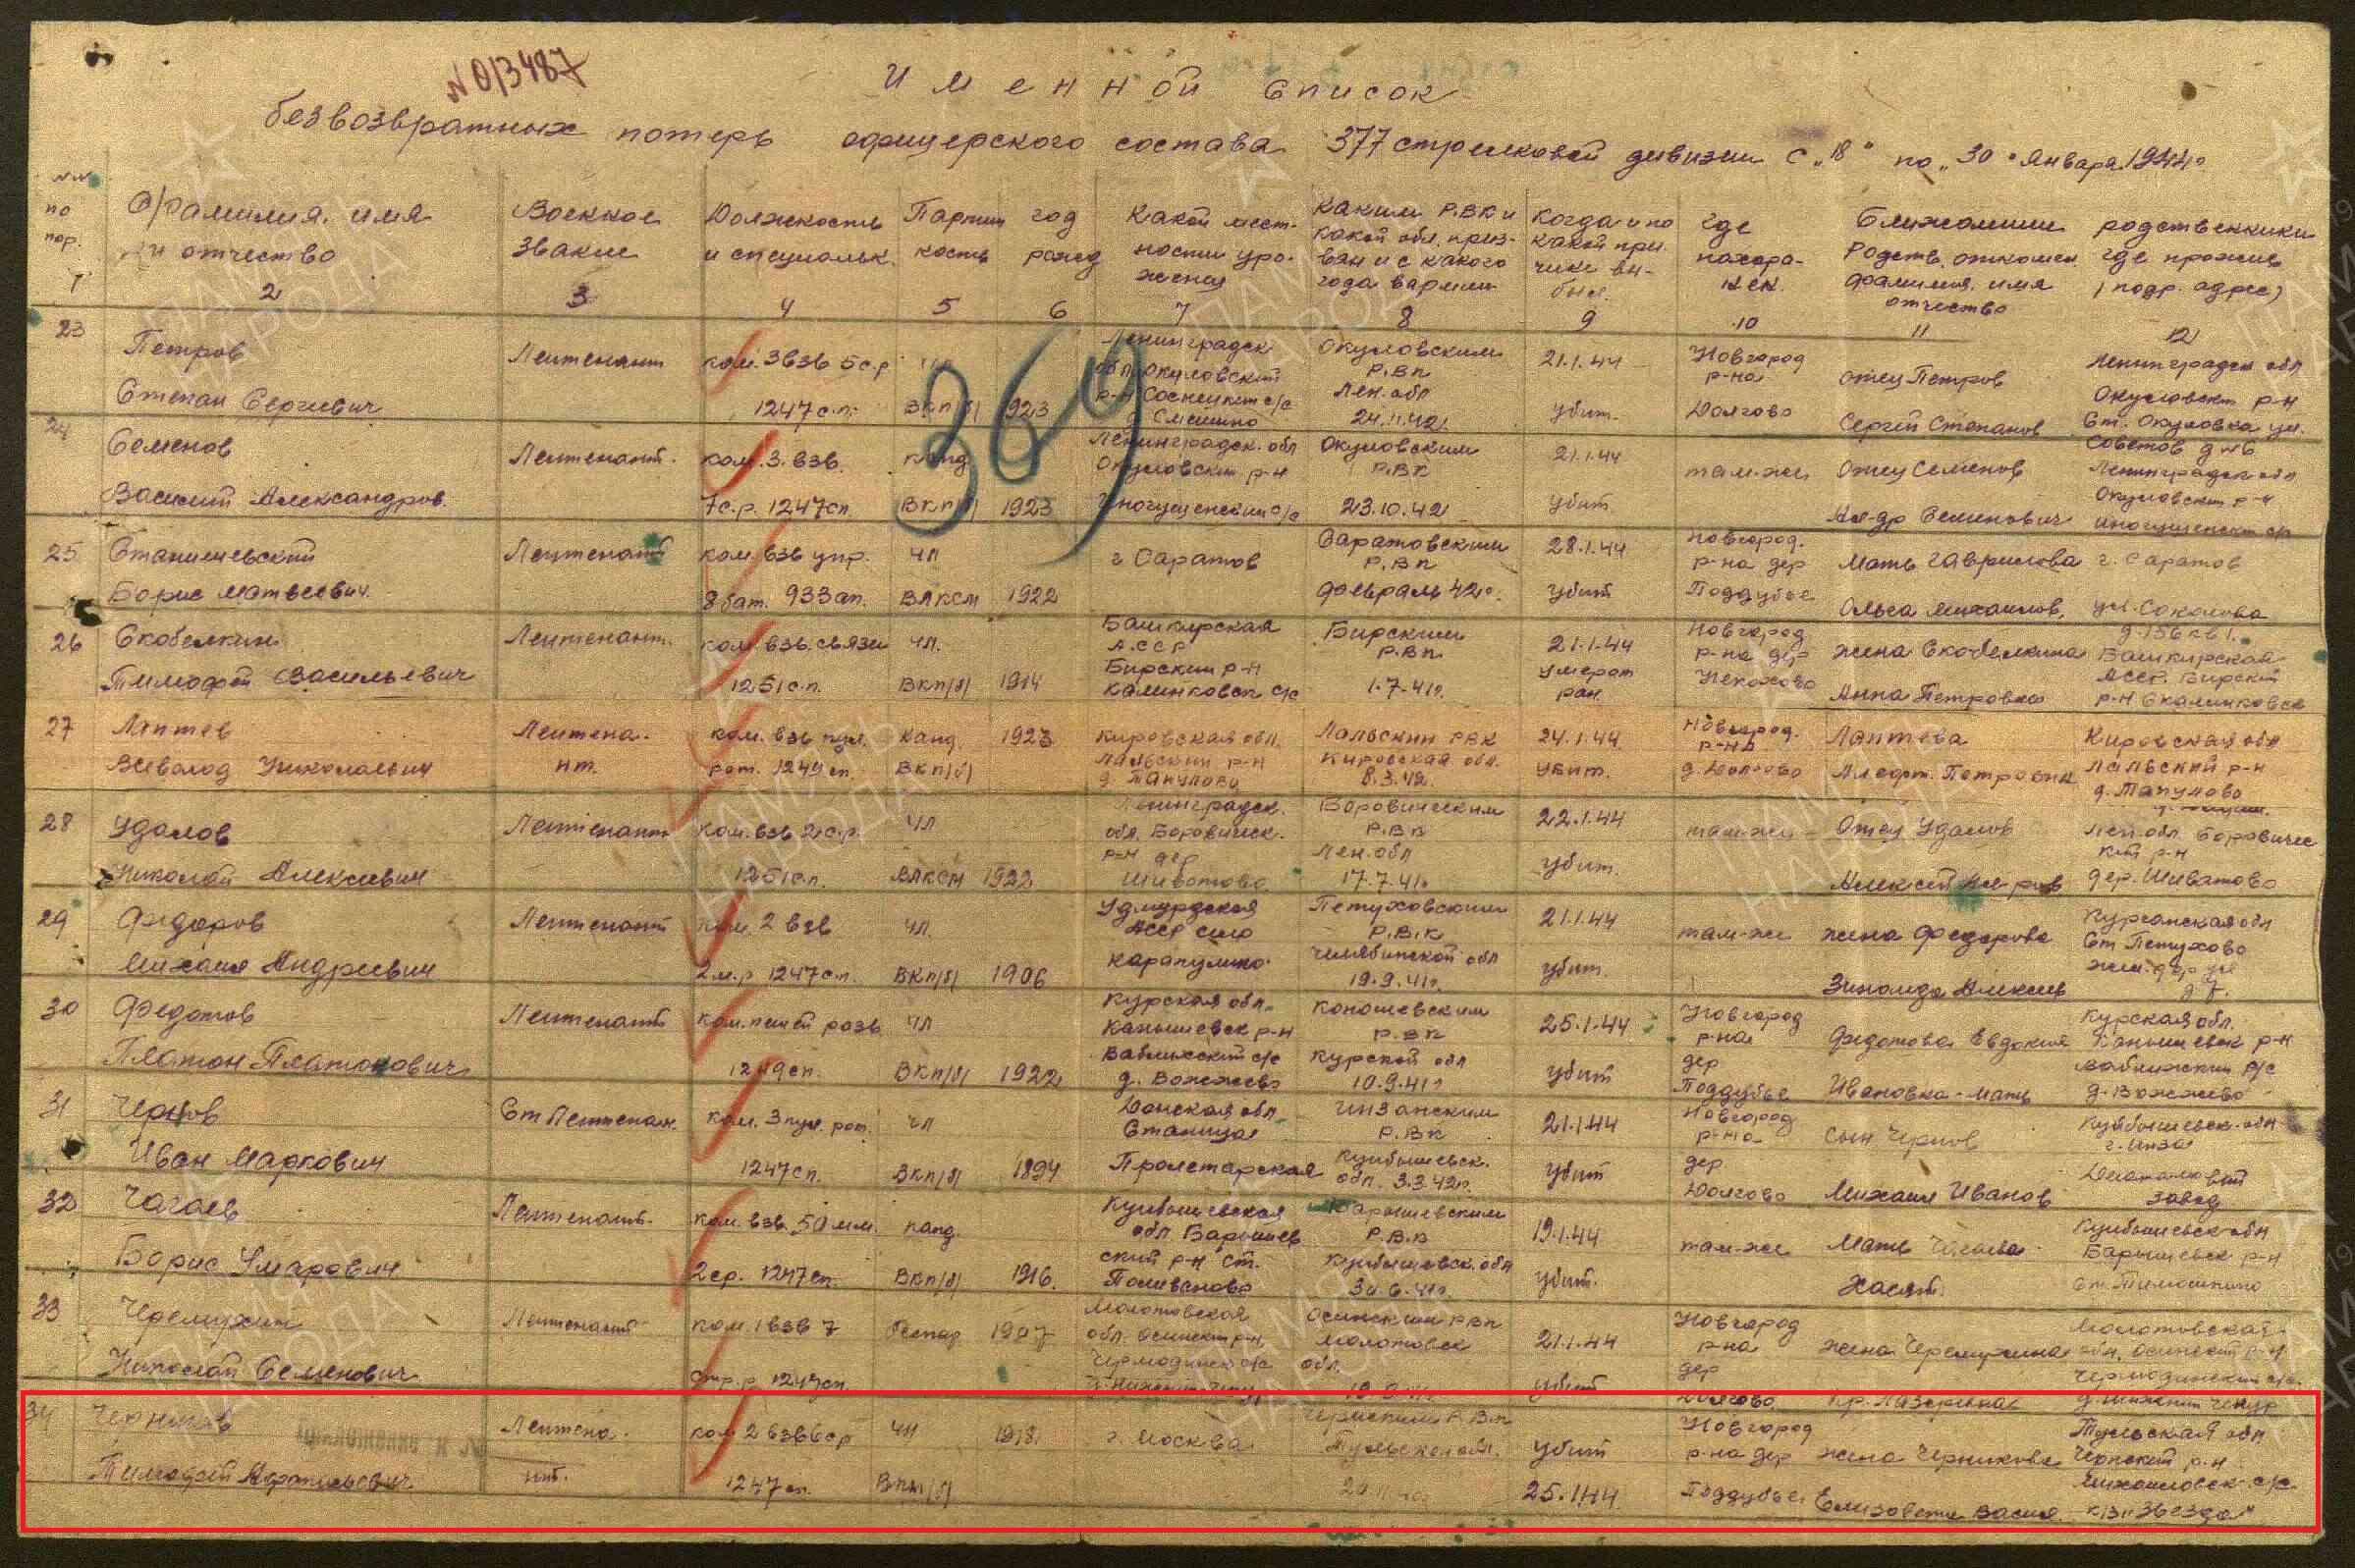 N 013487
Именной список
безвозвратных потерь офицерского состава 377 стрелковой дивизии с „18" по „30" января 1944г
№№ по пор.
Фамилия, имя и отчество
Военное звание
Должность и специальн.
Партийность
год рожд
Какой местности уроженец
Каким Р.В.К и какой обл. призван и с какого года в армии
Когда и по какой причине выбыл.
Где похоронен.
Ближайшие родственники
Родств. отношен. фамилия, имя отчество
где прожив (подр. адрес)
1 2 3 4 5 6 7 8 9 10 11 12
369
23 Петров Степан Сергеевич
Лейтенант
ком. 3 взв 5 с.р 1247 с.п.
ВКП/б/ 1923
Ленинградск обл. Окуловский р-н
Окуловским Р.В.К Лен. обл
21.1.44 убит.
Новгород р-на Долгово
отец Петров Сергей Степанов
Ленинградск обл Окуловский р-н Ст. Окуловка ул. Советов
24 Семенов Василий Александров.
Лейтенант.
ком. 3. взв. 7 с.р. 1247 сп.
канд ВКП/б/ 1923
Ленинградск. обл Окуловский р-н
Окуловским Р.В.К 23.10.42
21.1.44 убит
там-же
отец Семенов Ал-др Семенович
Ленинградск обл Окуловский р-н
25 Станишевский Борис Матвеевич.
Лейтенант
ком. взв упр. 8 бат. 933 ап.
чл ВЛКСМ 1922
г Саратов
Саратовским Р.В.К февраль 42г.
28.1.44 убит
Новгород. р-на дер Поддубье
Мать Гаврилова Ольга Михайлов.
г. Саратов ул. Соколова
26 Скобелкин Тимофей Васильевич
Лейтенант.
ком. взв. связи 1251 с.п.
чл. ВКП/б/ 1914
Башкирская АССР Бирский р-н Калинковск с/с
Бирским Р.В.К 1.7.41г.
21.1.44 умер от ран.
Новгород р-на дер
жена Скобелкина Анна Петровна
Башкирская АССР. Бирский р-н
27 Лаптев Всеволод Николаевич
Лейтенант.
ком. взв пул. рот. 1249 сп.
Канд. ВКП(б) 1923
Кировская обл. Лальский р-н д. Папулово
Лальским РВК Кировская обл. 8.3.42.
24.1.44. убит.
Новгород. р-на д. Долгово
Лаптева
Кировская обл Лальский р-н д. Папулово
28 Удалов Николай Алексеевич
Лейтенант
ком. взв 2 с.р. 1251 с.п.
чл ВЛКСМ 1922
Ленинградск. обл. Боровичск. р-н дер Шиватово
Боровическим Р.В.К Лен. обл 17.7.41г
22.1.44 убит.
там-же
Отец Удалов
Лен. обл. Боровический р-н дер. Шиватово
29 Федоров Михаил Андреевич
Лейтенант
ком. 2 взв 2 м.р 1247 с.п.
чл. ВКП/б/ 1906
Удмурдская АССР село Каракулино
Петуховским Р.В.К Челябинской обл 19.9.41г.
21.1.44 убит.
там-же
жена Федорова Зинаида Алексеев
Курганская обл Ст Петухово
30 Федотов Платон Платонович
Лейтенант
ком. пешей разв 1249 сп.
чл ВКП/б/ 1922
Курская обл. Конышевск р-н
Конышевским Р.В.К Курской обл 10.9.41г
25.1.44 убит
Новгород р-на дер Поддубье
Федотова Евдокия Ивановна - мать
Курская обл. Конышевск р-н
31 Чернов Иван Маркович
Ст Лейтенан.
ком. 3 пул. рот. 1247 сп.
чл ВКП/б/ 1894
Донская обл Станица Пролетарская
Инзенским Р.В.К Куйбышевск. обл. 3.3.42г.
21.1.44 убит
Новгород р-на дер Долгово
Сын Чернов Михаил Иванов
Куйбышевск. обл г. Инза завод
32 Чагаев Борис Умарович
Лейтенант.
ком. взв. 50 мм. 2 ср. 1247 сп.
канд. ВКП/б/ 1916.
Куйбышевская обл. Барышевский р-н ст. Поливаново
Барышевским Р.В.К Куйбышевск. обл 30.6.41г.
19.1.44 убит.
там-же
Мать Чагаева
Куйбышевск обл Барышевск р-н
33 Черемухин Николай Семенович
Лейтенант
ком. 1 взв 7 стр. р. 1247 сп
беспар. 1907
Молотовская обл. Осинский р-н
Осинским РВК Молотовск обл.
21.1.44 убит
Новгород р-на дер Долгово
жена Черемухина
Молотовская обл, Осинский р-н
34 Черников Тимофей
Лейтенант.
ком 2 взв 6 ср 1247 сп.
чл ВКП/б/ 1918.
г. Москва
Чернским Р.В.К Тульской обл.
убит 25.1.44
Новгород р-на дер Поддубье
жена Черникова Елизавета Васил.
Тульская обл Чернский р-н с/с к/з „Звезда"
приложение к №
ПАМЯТЬ НАРОДА